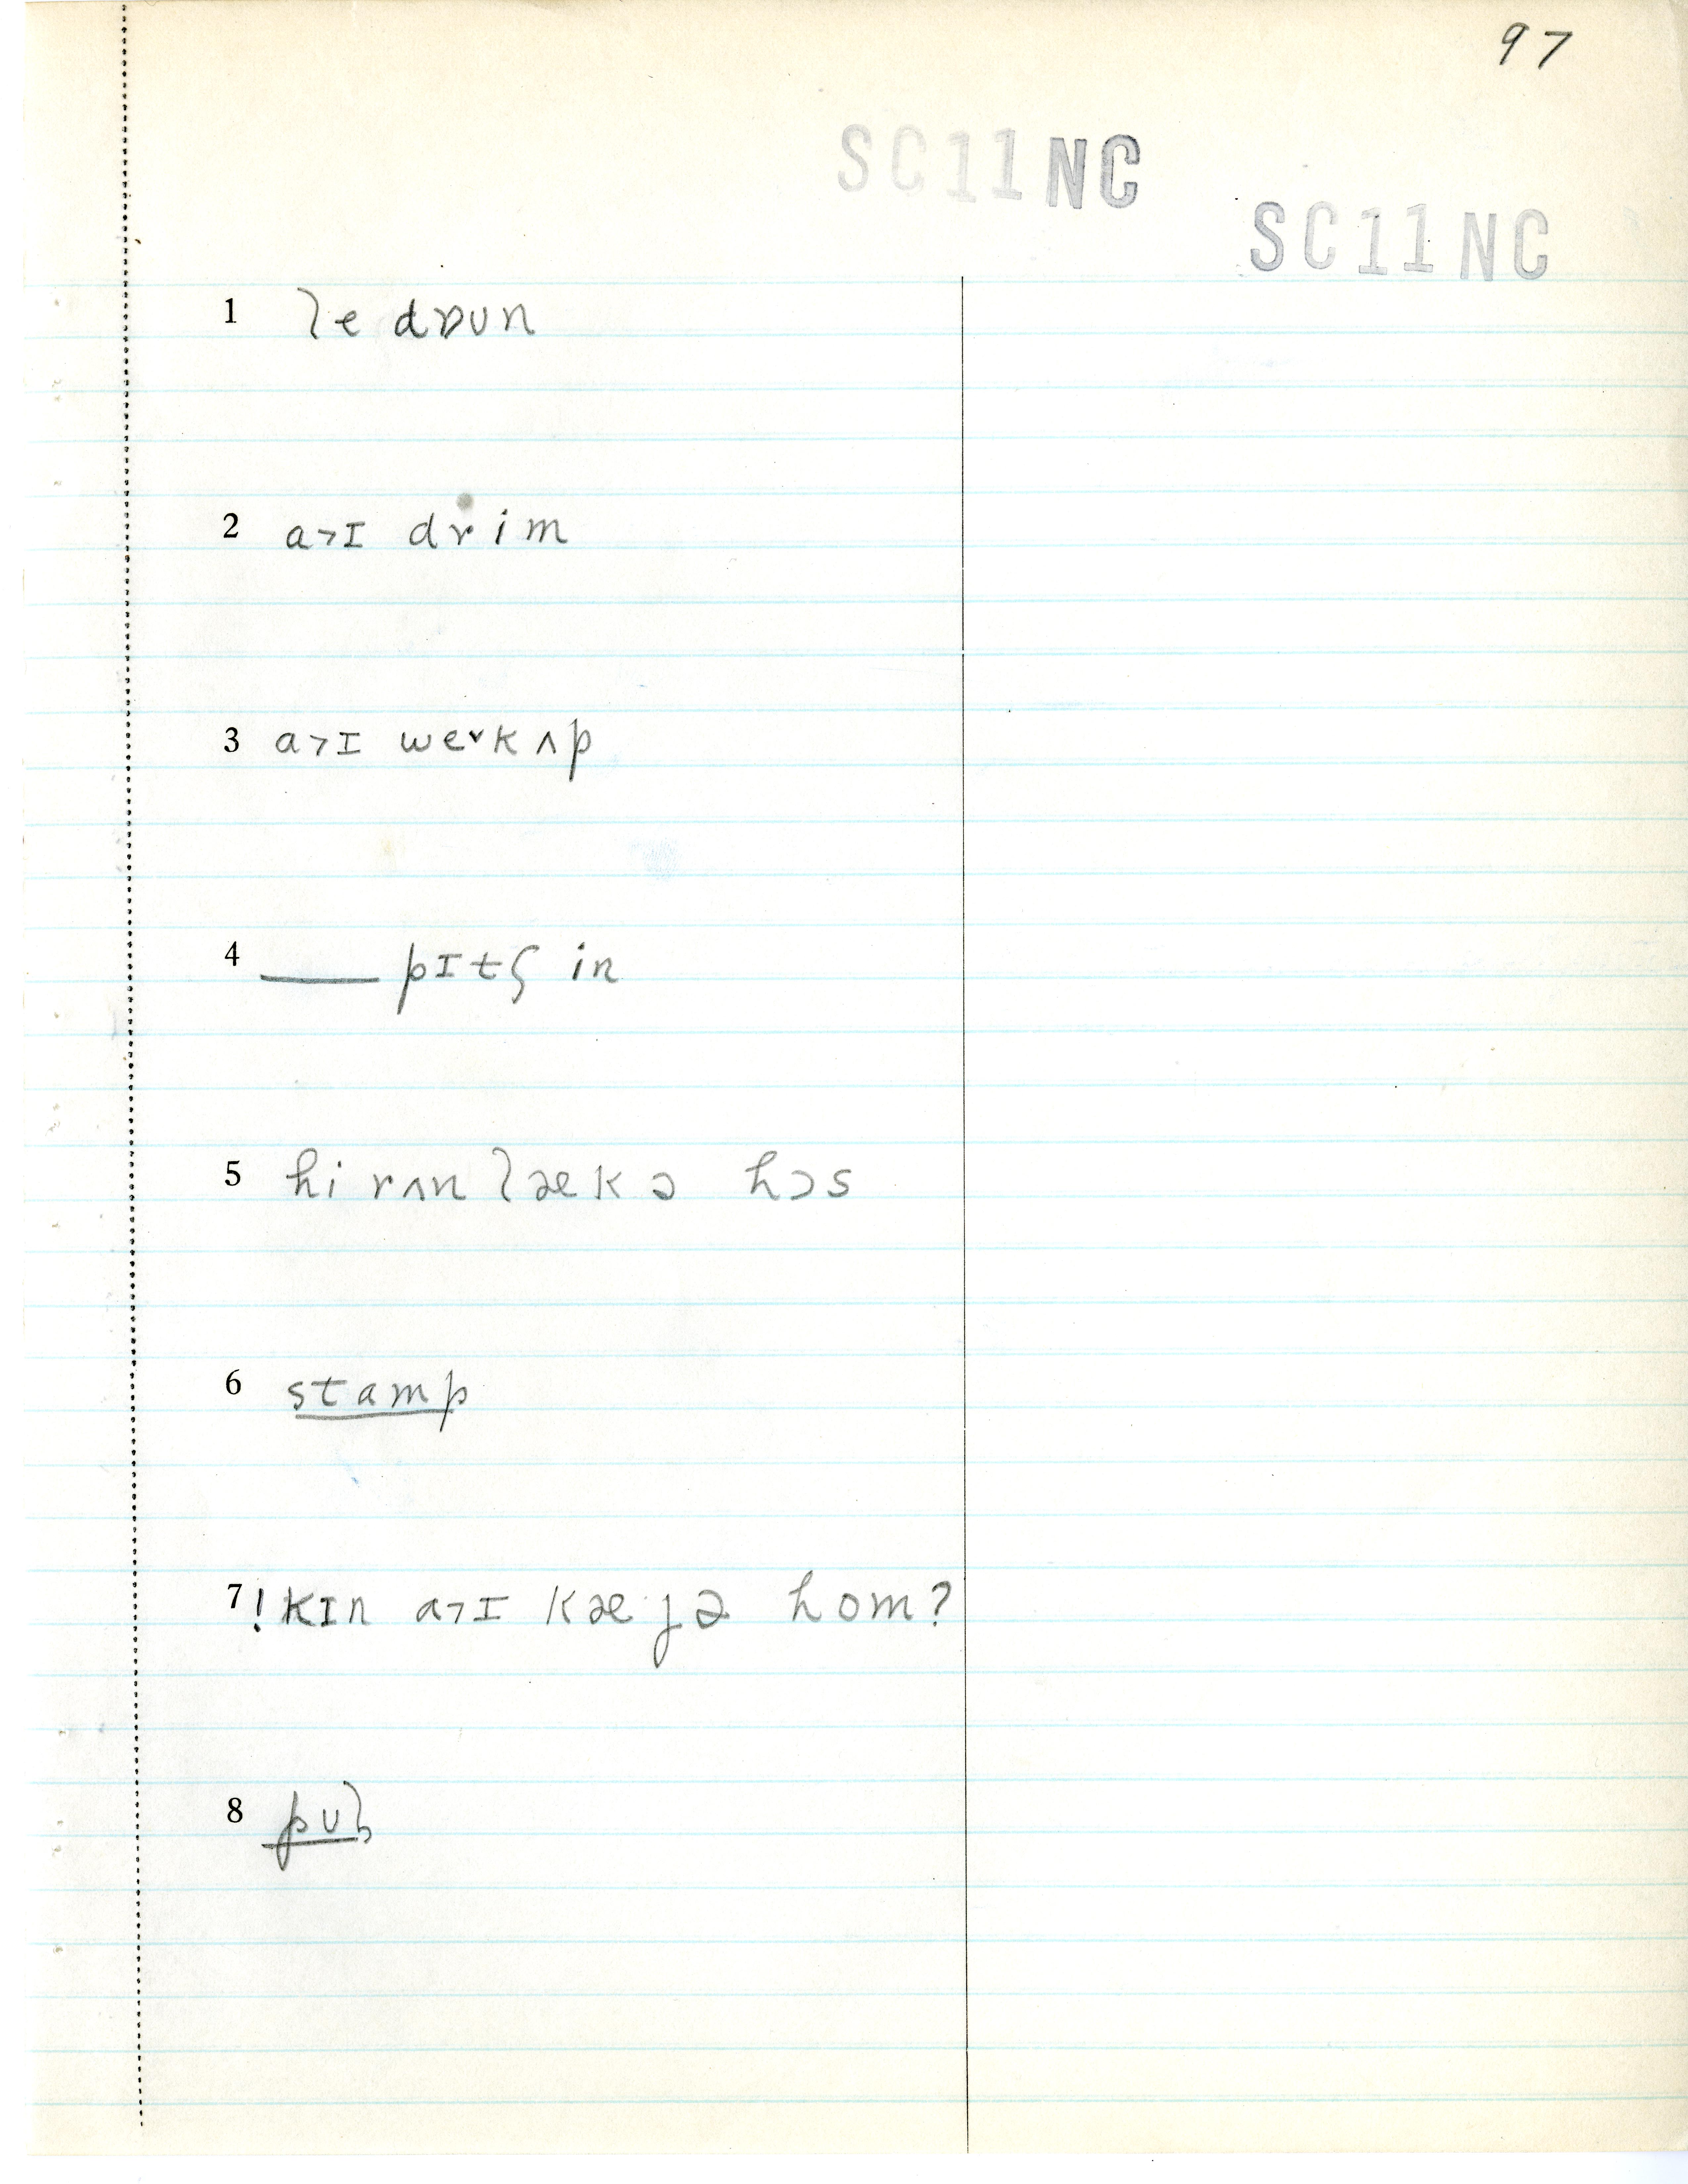 97
SC11NC
SC11NC
1 le dɒun
2 a˃ɪ drim
3 a˃ɪ we˅kʌp
4 ___ pɪtʃ in
5 hi rʌn laekə hɔs
6 stamp
7 ! kɪn a˃ɪ kaejə hom?
8 pul